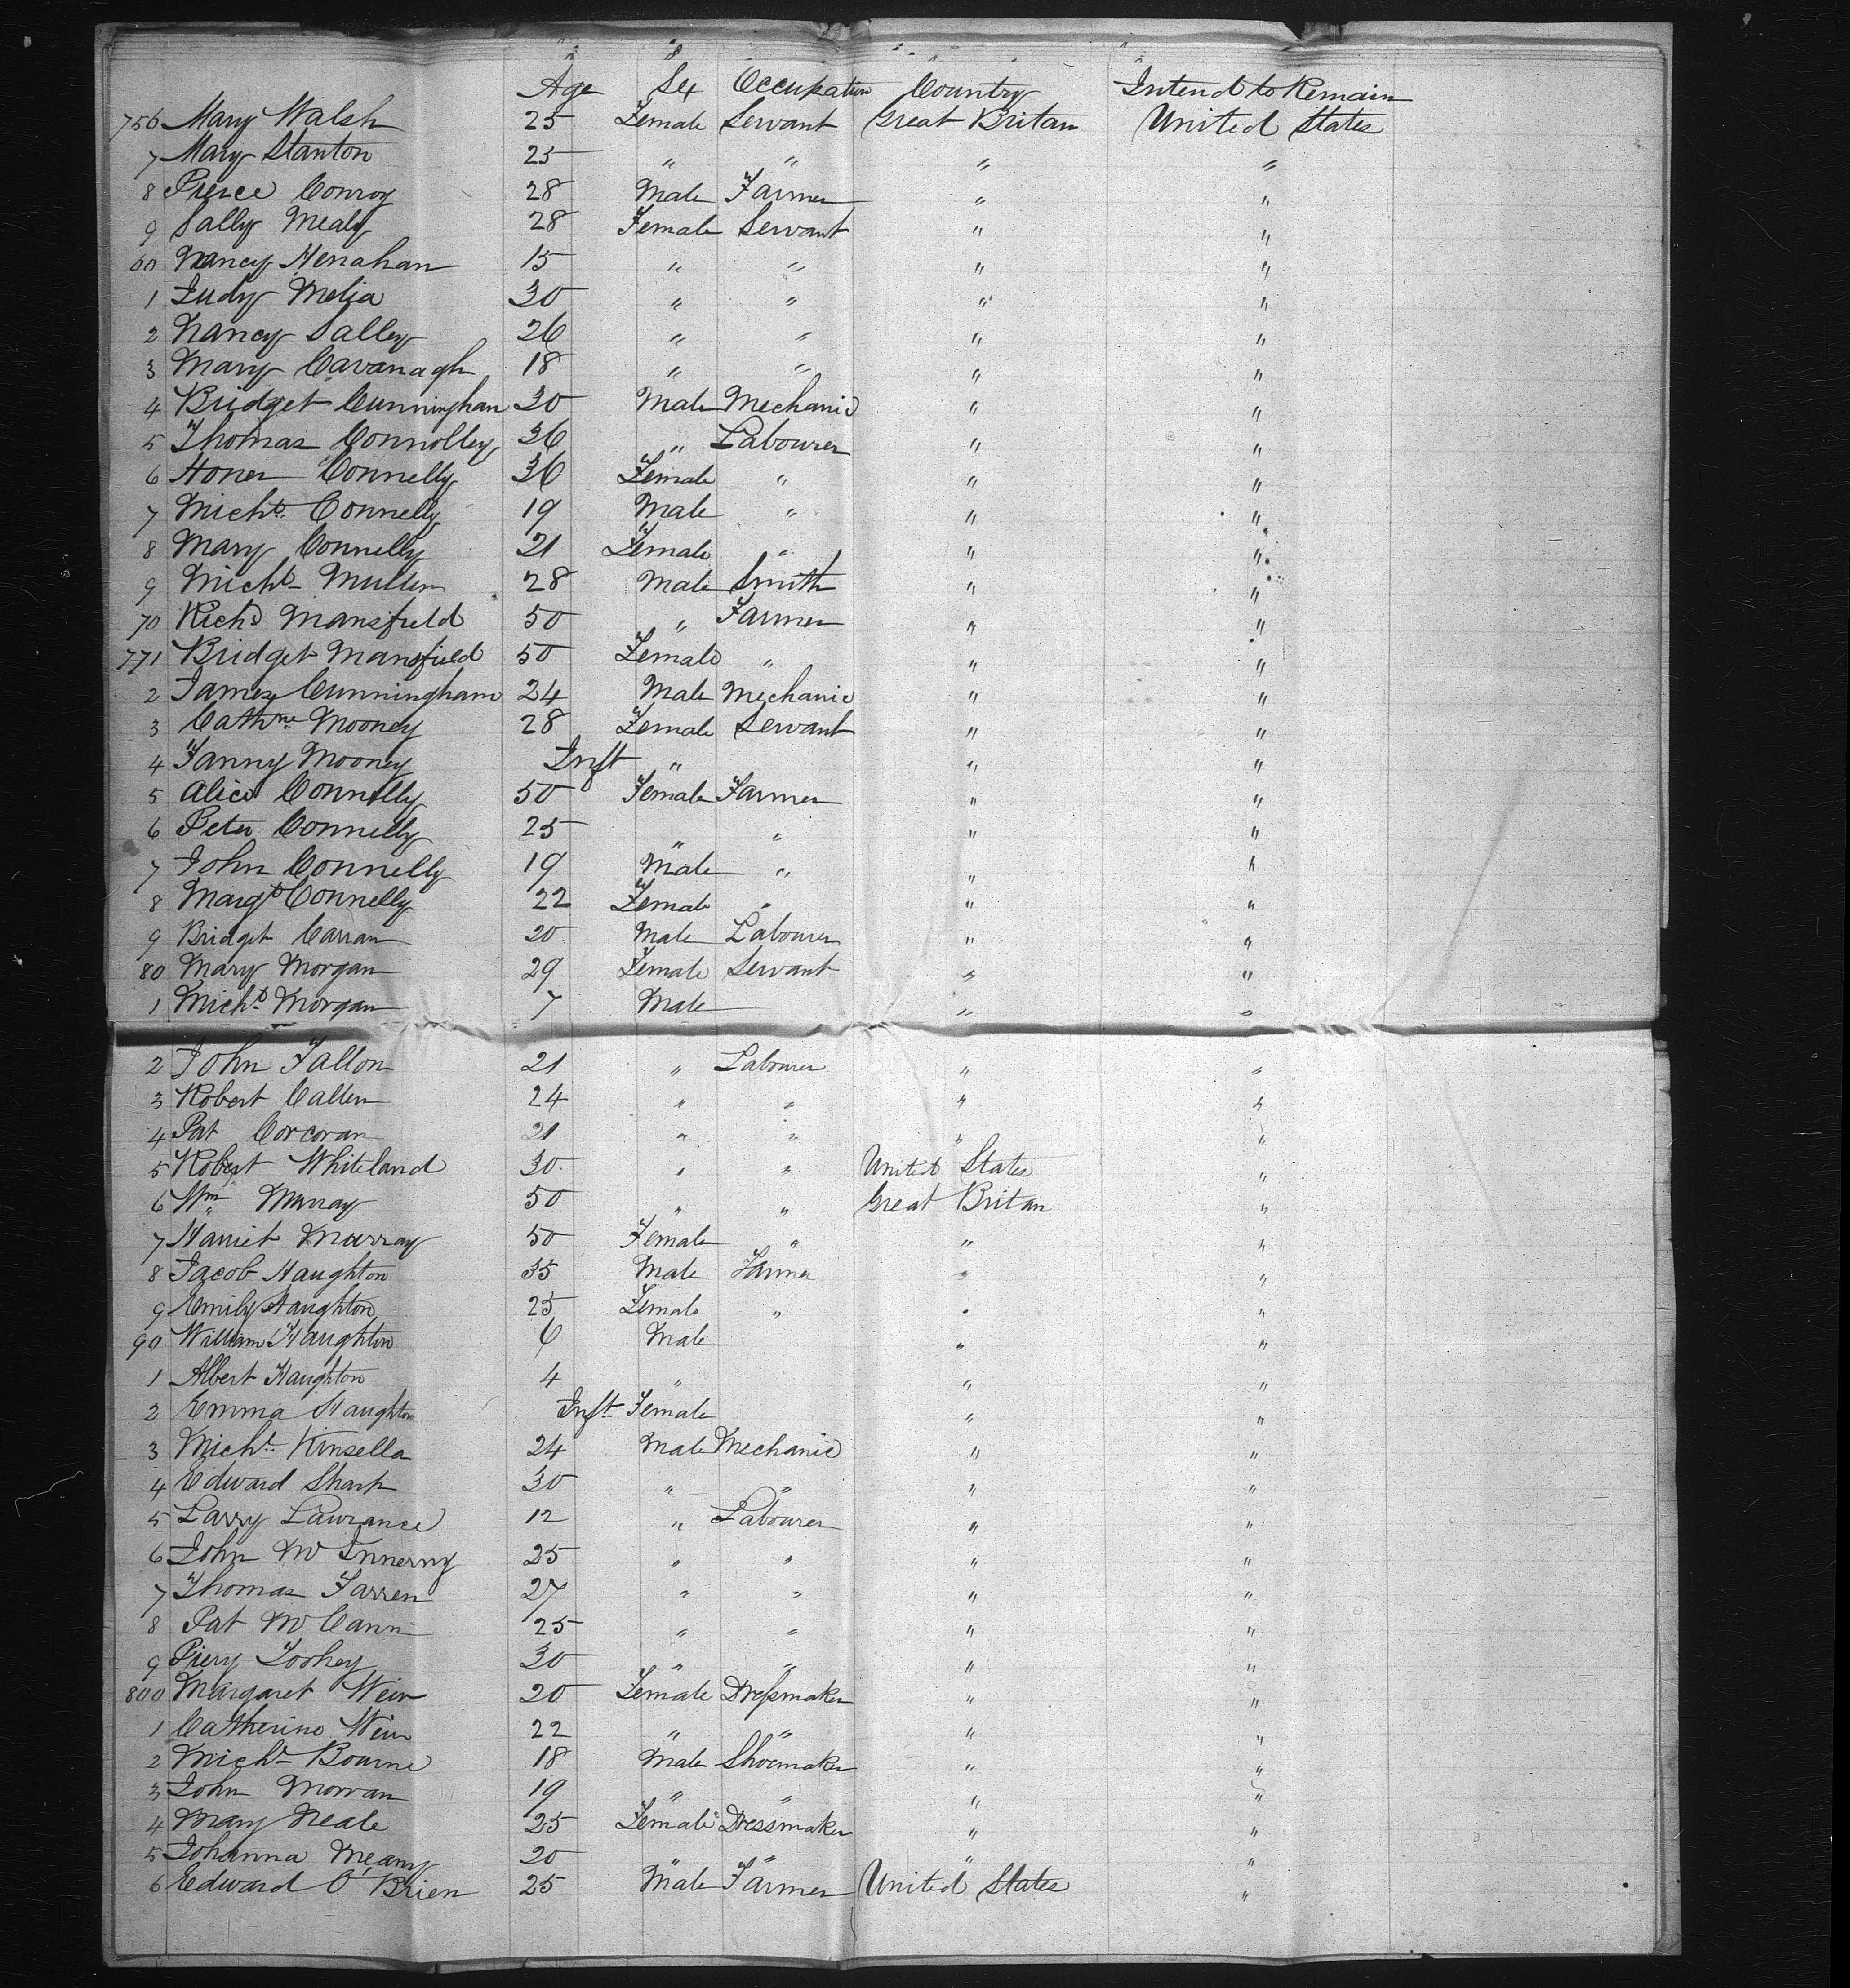 Age Sex Occupation Country Intend to Remain
756 Mary Walsh 25 Female Servant Great Britan United States
7 Mary Stanton 25 " " " "
8 Pierce Conroy 28 Male Farmer " "
9 Sally Mealy 28 Female Servant " "
60 Nancy Henahan 15 " " " "
1 Judy Melia 30 " " " "
2 Nancy Salley 26 " " " "
3 Mary Cavanagh 18 " " " "
4 Bridget Cunningham 30 Male Mechanic " "
5 Thomas Connolley 36 " Labourer " "
6 Honer Connelly 36 Female " " "
7 Michl. Connelly 19 Male " " "
8 Mary Connelly 21 Female " " "
9 Michl Mullen 28 Male Smith " "
70 Richd Mansfield 50 " Farmer " "
771 Bridget Mansfield 50 Female " " "
2 James Cunningham 24 Male Mechanic " "
3 Cathne Mooney 28 Female Servant " "
4 Fanny Mooney Inft " " "
5 Alice Connelly 50 Female Farmer " "
6 Peter Connelly 25 " " " "
7 John Connelly 19 Male " " "
8 Margt Connelly 22 Female " " "
9 Bridget Carran 20 Male Labourer " "
80 Mary Morgan 29 Female Servant " "
1 Michl Morgan 7 Male " "
2 John Fallon 21 " Labourer " "
3 Robert Callen 24 " " " "
4 Pat Corcoran 21 " " " "
5 Robert Whiteland 30 " " United States "
6 Wm Murray 50 " " Great Britan "
7 Harriet Murray 50 Female " " "
8 Jacob Haughton 35 Male Farmer " "
9 Emily Haughton 25 Female " " "
90 William Haughton 6 Male " "
1 Albert Haughton 4 " " "
2 Emma Haughton Inft Female " "
3 Michl. Kinsella 24 Male Mechanic " "
4 Edward Sharp 30 " " " "
5 Larry Lawrance 12 " Labourer " "
6 John Mc Innerny 25 " " " "
7 Thomas Farren 27 " " " "
8 Pat Mc Cann 25 " " " "
9 Piery Toohey 30 " " " "
800 Margaret Weir 20 Female Dressmaker " "
1 Catherine Weir 22 " " " "
2 Michl Bourne 18 Male Shoemaker " "
3 John Morran 19 " " " "
4 Mary Neale 25 Female Dressmaker " "
5 Johanna Meany 20 " " " "
6 Edward O'Brien 25 Male Farmer United States "